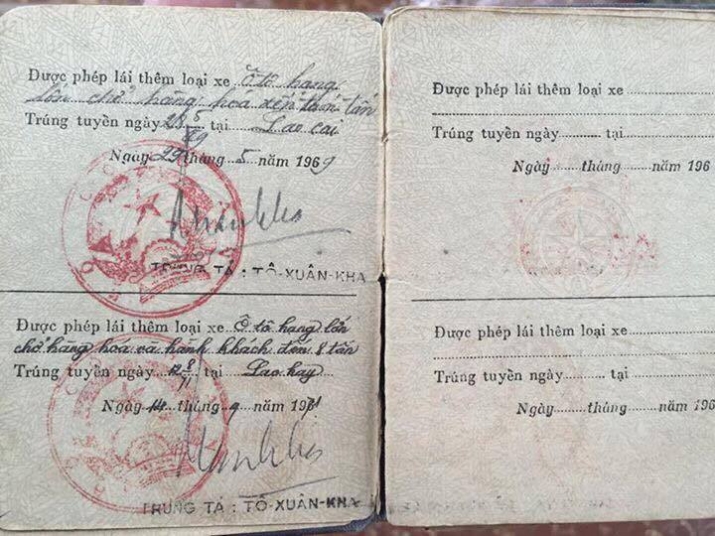 Được phép lái thêm loại xe Ô tô hạng
lớn chở hàng hóa trên tấn
Trúng tuyển ngày 23 5/69 tại Lao cai
Ngày 29 tháng 5 năm 1969
TRUNG TÁ : TÔ-XUÂN-KHA
Được phép lái thêm loại xe Ô tô hạng lớn
chở hàng hoá và hành khách đến 8 tấn
Trúng tuyển ngày 12 8/71 tại Lao kay
Ngày 14 tháng 9 năm 1971
TRUNG TÁ : TÔ-XUÂN-KHA
Được phép lái thêm loại xe
Trúng tuyển ngày tại
Ngày tháng năm 196
Được phép lái thêm loại xe
Trúng tuyển ngày tại
Ngày tháng năm 196